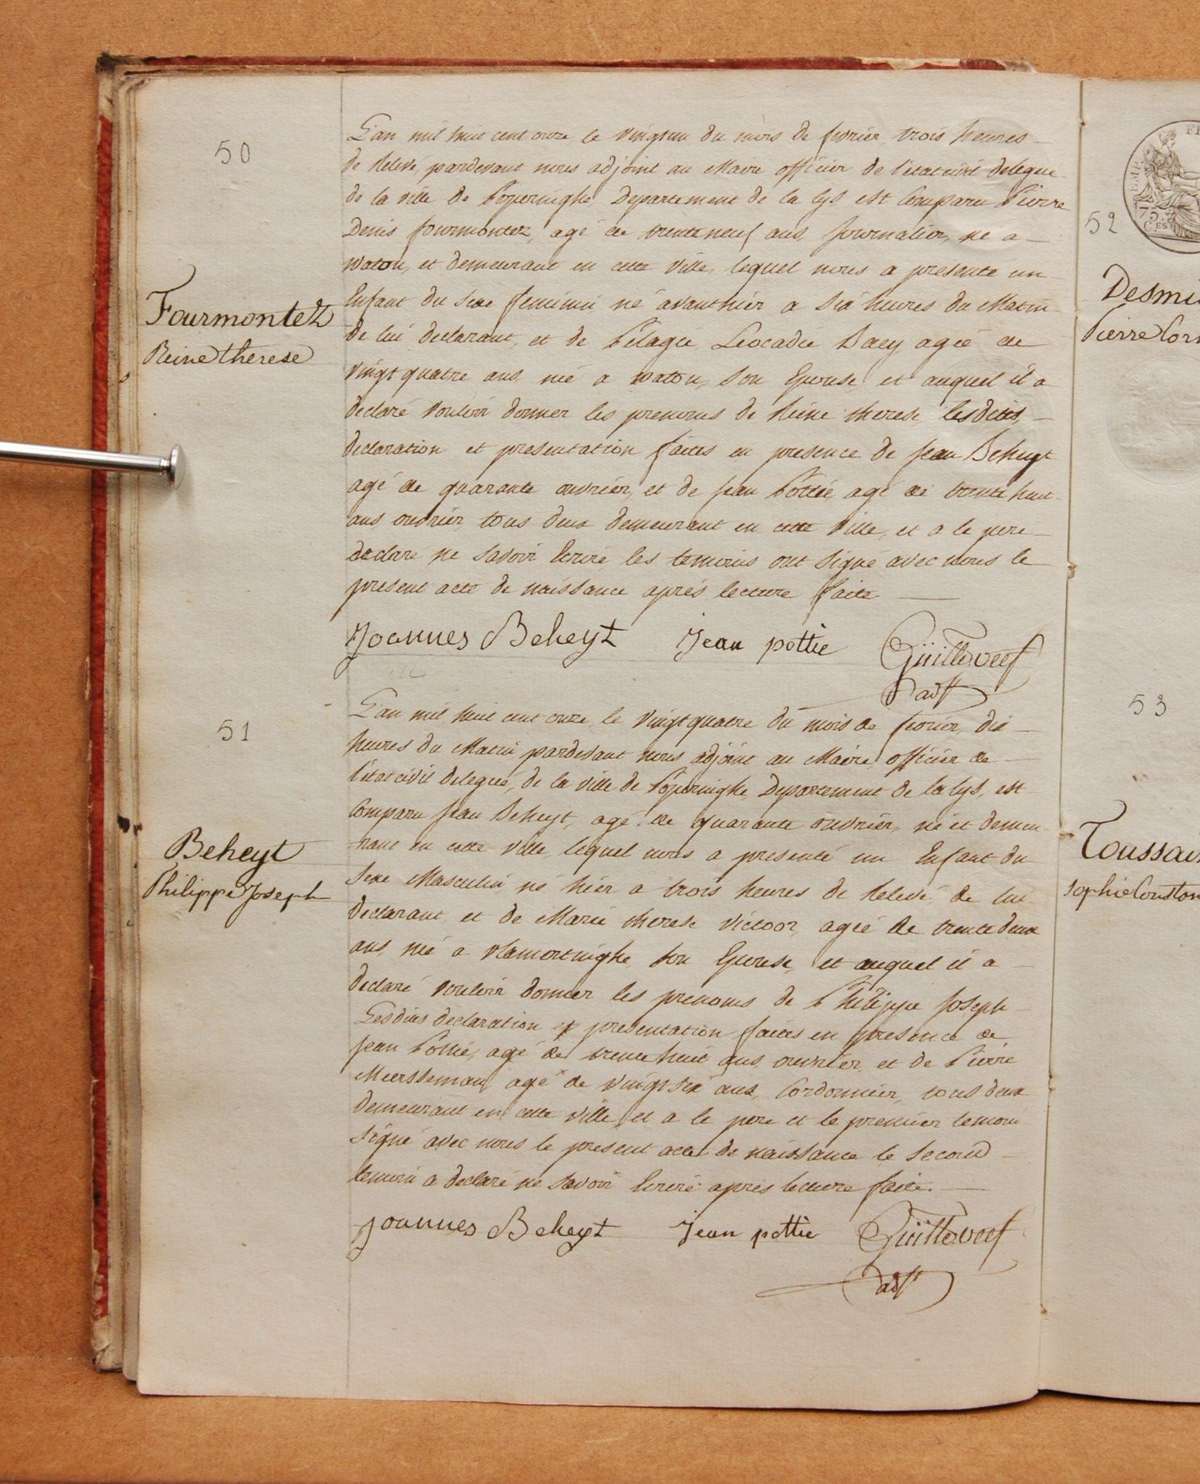 50
Fourmontez
Reine therese
L'an mil huit cent onze le vingtun du mois de fevrier trois heures
de Relevé, pardevant nous adjoint au Maire officier de l'etat civil delegué
de la ville de Poperinghe, Departement de la Lys est Comparu Pierre
Denis fourmontez, agé de trente neuf ans, Journalier, né a
Watou, et demeurant en cette ville, lequel nous a presenté un
Enfant du Sexe feminin né avanthier a six heures du Matin
de lui declarant, et de Pelagie Leocadie Daey agée de
vingt quatre ans née a watou, son Epouse, et auquel il a
declaré vouloir donner les prenoms de Reine therese, lesdites
declaration et presentation faites en presence de Jean Beheyt
agé de quarante ouvrier, et de Jean Pottie agé de trente huit
ans ouvrier tous deux demeurant en cette ville, et a le pere
declare ne savoir Ecrire les temoins ont signé avec nous le
present acte de naissance après lecture faite
Joannes Beheyt Jean pottie
adjt
51
Beheyt
Philippe Joseph
L'an mil huit cent onze, le vingt quatre du mois de fevrier, dix
heures du Matin pardevant nous adjoint au Maire officier de
l'etat civil delegué, de la ville de Poperinghe Departement de la Lys, est
Comparu Jean Beheyt, agé de quarante ouvrier, né et demeu
rant en cette ville, lequel nous a presenté un Enfant du
Sexe Masculin né hier a trois heures de Relevé, de lui
declarant, et de Marie therese Victoor agée de trente deux
ans, née a Vlamertinghe son Epouse, et auquel il a
declaré vouloir donner les prenoms de Philippe Joseph
Lesdites declaration et presentation faites en presence de
Jean Pottie, agé de trente huit ans ouvrier, et de Pierre
Meersseman agé de vingt six ans, Cordonnier, tous deux
demeurant en cette ville, et a le pere et le premier temoin
signé avec nous le present acte de naissance le second
temoin a declaré ne savoir Ecrire après lecture faite.
Joannes Beheyt Jean pottie
adjt
52
Pierre Corn
53
Toussai